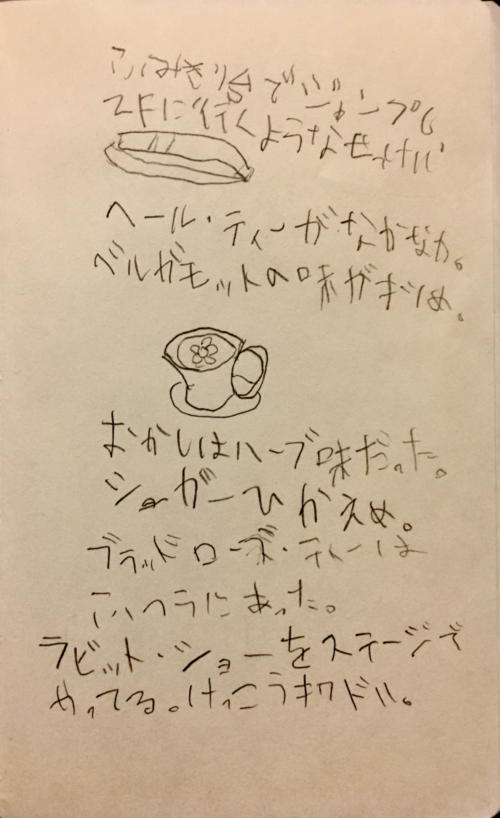 ふみきり台でジャンプし
2Fに行くようなせっけい
ヘール・ティーがなかなか。
ベルガモットの味がキツめ。
おかしはハーブ味だった。
シュガーひかえめ。
ブラッドローズ・ティーは
ふつうにあった。
ラビット・ショーをステージで
やってる。けっこうキワドい。